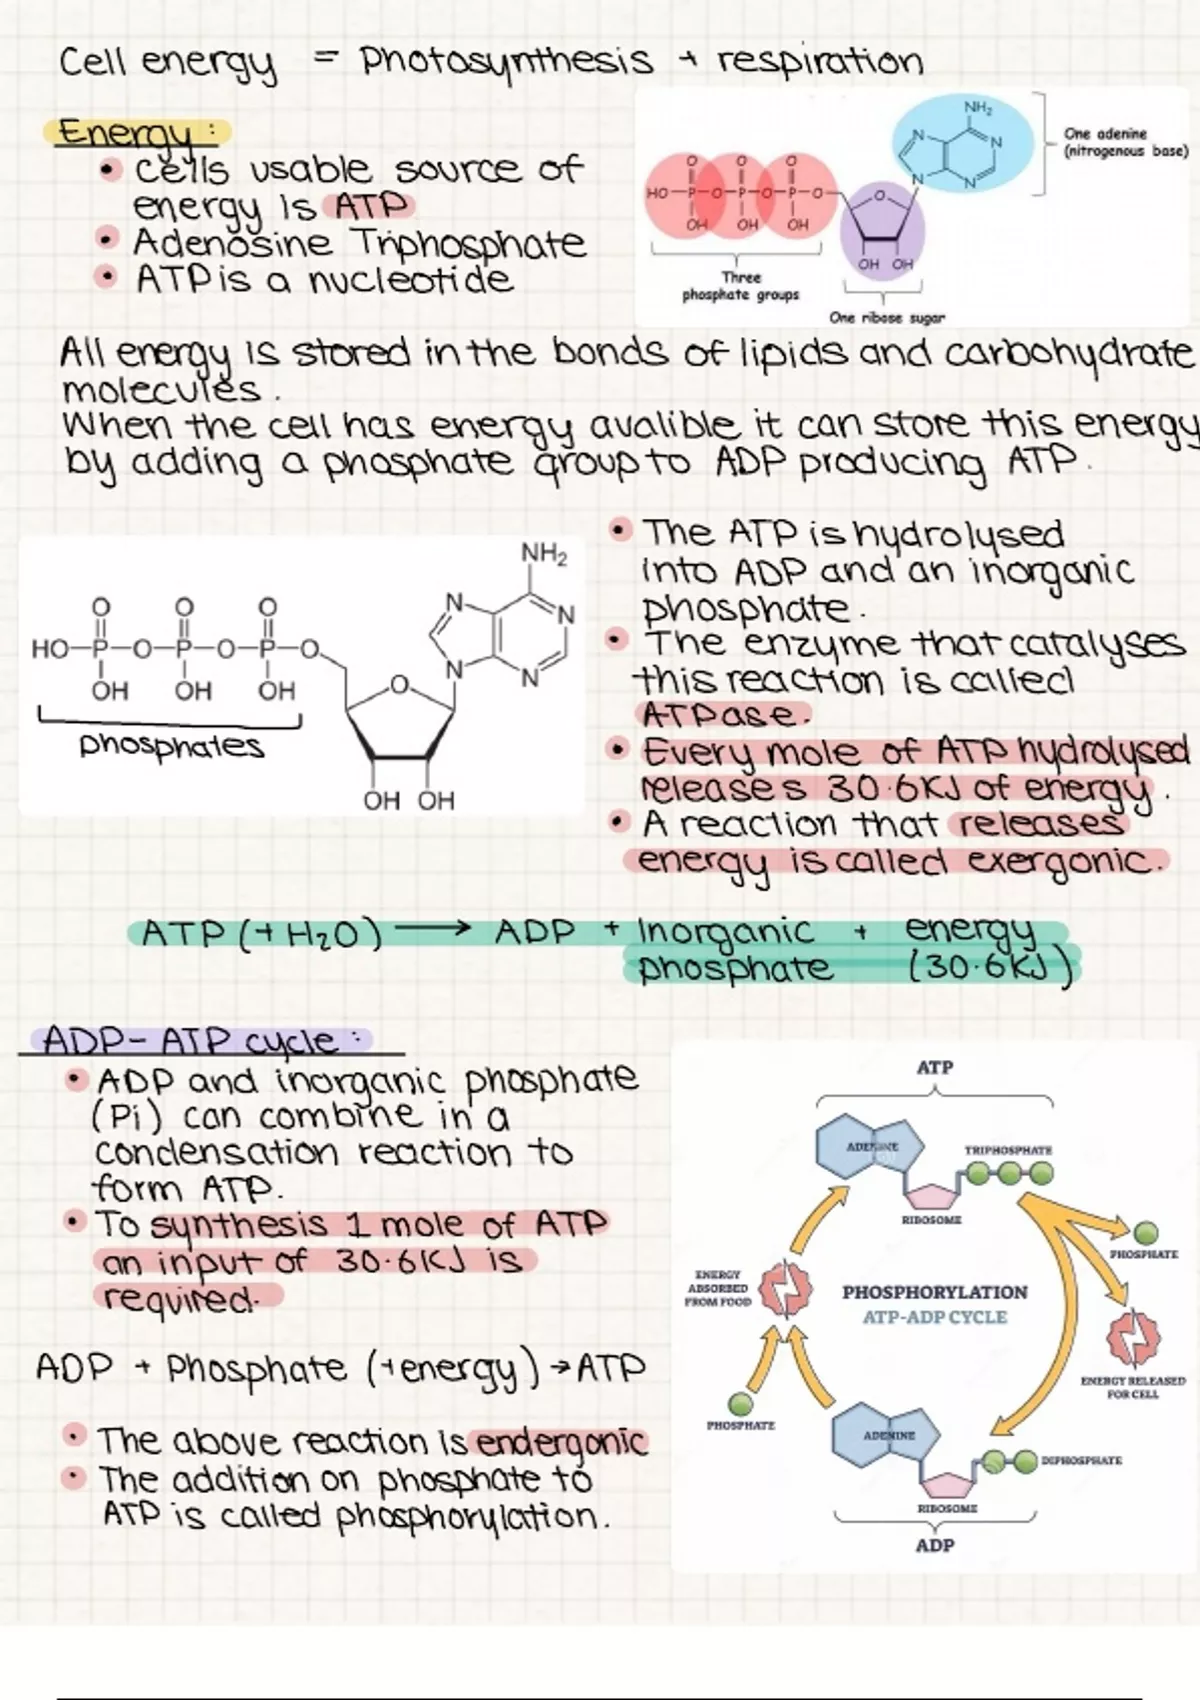 Cell energy = Photosynthesis + respiration
Energy:
• Cells usable source of
energy is ATP
• Adenosine Triphosphate
• ATP is a nucleotide
NH₂
N
N
N
N
One adenine
(nitrogenous base)
O O O
HO-P-O-P-O-P-O
OH OH OH
O
OH OH
Three
phosphate groups
One ribose sugar
All energy is stored in the bonds of lipids and carbohydrate
molecules.
When the cell has energy avalible it can store this energy
by adding a phosphate group to ADP producing ATP.
NH₂
N
N
N
N
O O O
HO-P-O-P-O-P-O
OH OH OH
O
OH OH
phosphates
• The ATP is hydrolysed
into ADP and an inorganic
phosphate.
• The enzyme that catalyses
this reaction is called
ATPase.
• Every mole of ATP hydrolysed
releases 30.6KJ of energy.
• A reaction that releases
energy is called exergonic.
ATP (+ H₂O) → ADP + Inorganic + energy
phosphate (30.6KJ)
ADP- ATP cycle:
• ADP and inorganic phosphate
(Pi) can combine in a
condensation reaction to
form ATP.
• To synthesis 1 mole of ATP
an input of 30.6KJ is
required.
ADP + Phosphate (+energy) → ATP
• The above reaction is endergonic
• The addition on phosphate to
ATP is called phosphorylation.
ATP
ADENINE
TRIPHOSPHATE
RIBOSOME
PHOSPHATE
ENERGY
ABSORBED
FROM FOOD
PHOSPHORYLATION
ATP-ADP CYCLE
ENERGY RELEASED
FOR CELL
PHOSPHATE
ADENINE
DIPHOSPHATE
RIBOSOME
ADP